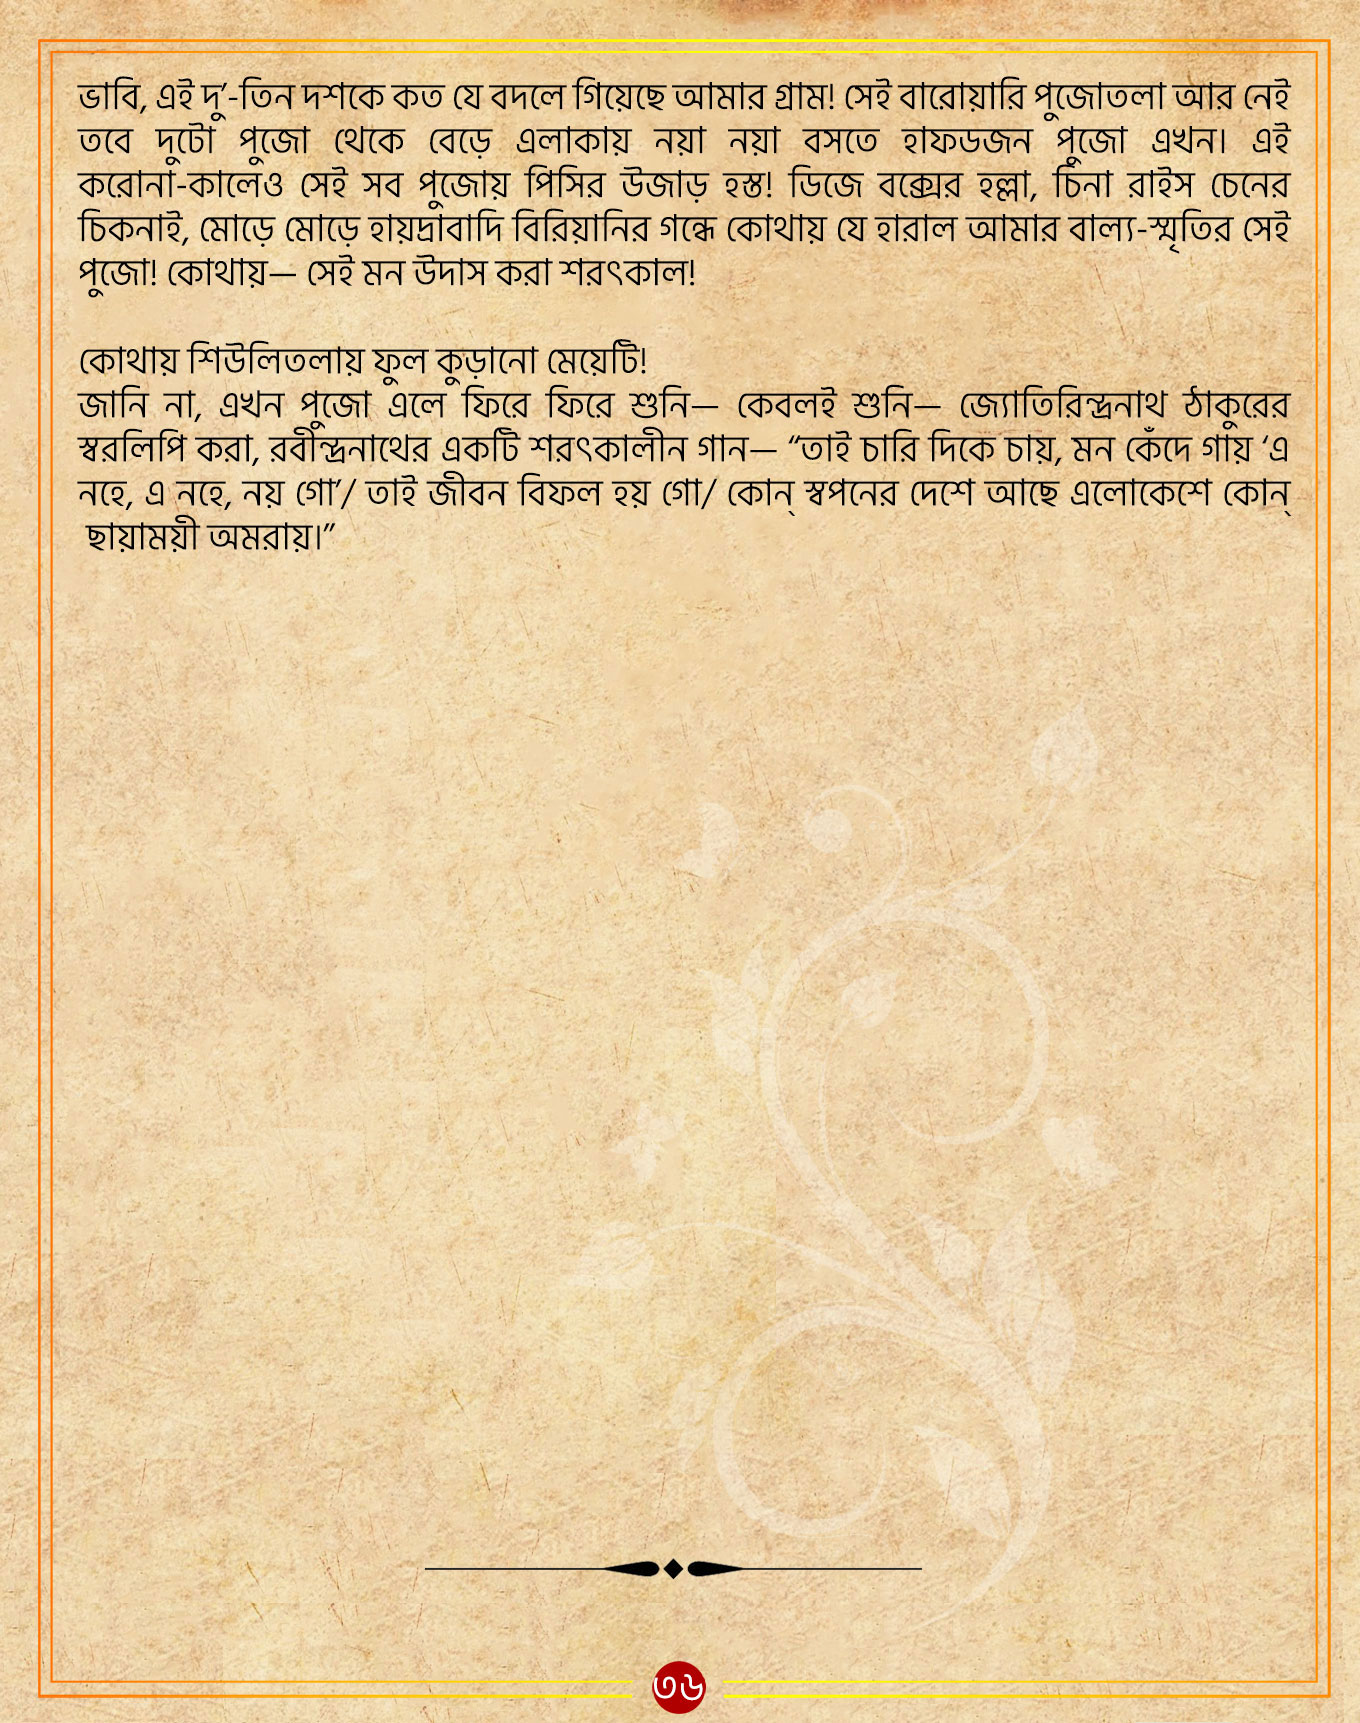 ভাবি, এই দু’-তিন দশকে কত যে বদলে গিয়েছে আমার গ্রাম! সেই বারোয়ারি পুজোতলা আর নেই
তবে দুটো পুজো থেকে বেড়ে এলাকায় নয়া নয়া বসতে হাফডজন পুজো এখন। এই
করোনা-কালেও সেই সব পুজোয় পিসির উজাড় হস্ত! ডিজে বক্সের হল্লা, চিনা রাইস চেনের
চিকনাই, মোড়ে মোড়ে হায়দ্রাবাদি বিরিয়ানির গন্ধে কোথায় যে হারাল আমার বাল্য-স্মৃতির সেই
পুজো! কোথায়— সেই মন উদাস করা শরৎকাল!
কোথায় শিউলিতলায় ফুল কুড়ানো মেয়েটি!
জানি না, এখন পুজো এলে ফিরে ফিরে শুনি— কেবলই শুনি— জ্যোতিরিন্দ্রনাথ ঠাকুরের
স্বরলিপি করা, রবীন্দ্রনাথের একটি শরৎকালীন গান— “তাই চারি দিকে চায়, মন কেঁদে গায় ‘এ
নহে, এ নহে, নয় গো’/ তাই জীবন বিফল হয় গো/ কোন্ স্বপনের দেশে আছে এলোকেশে কোন্
ছায়াময়ী অমরায়।”
৩৬